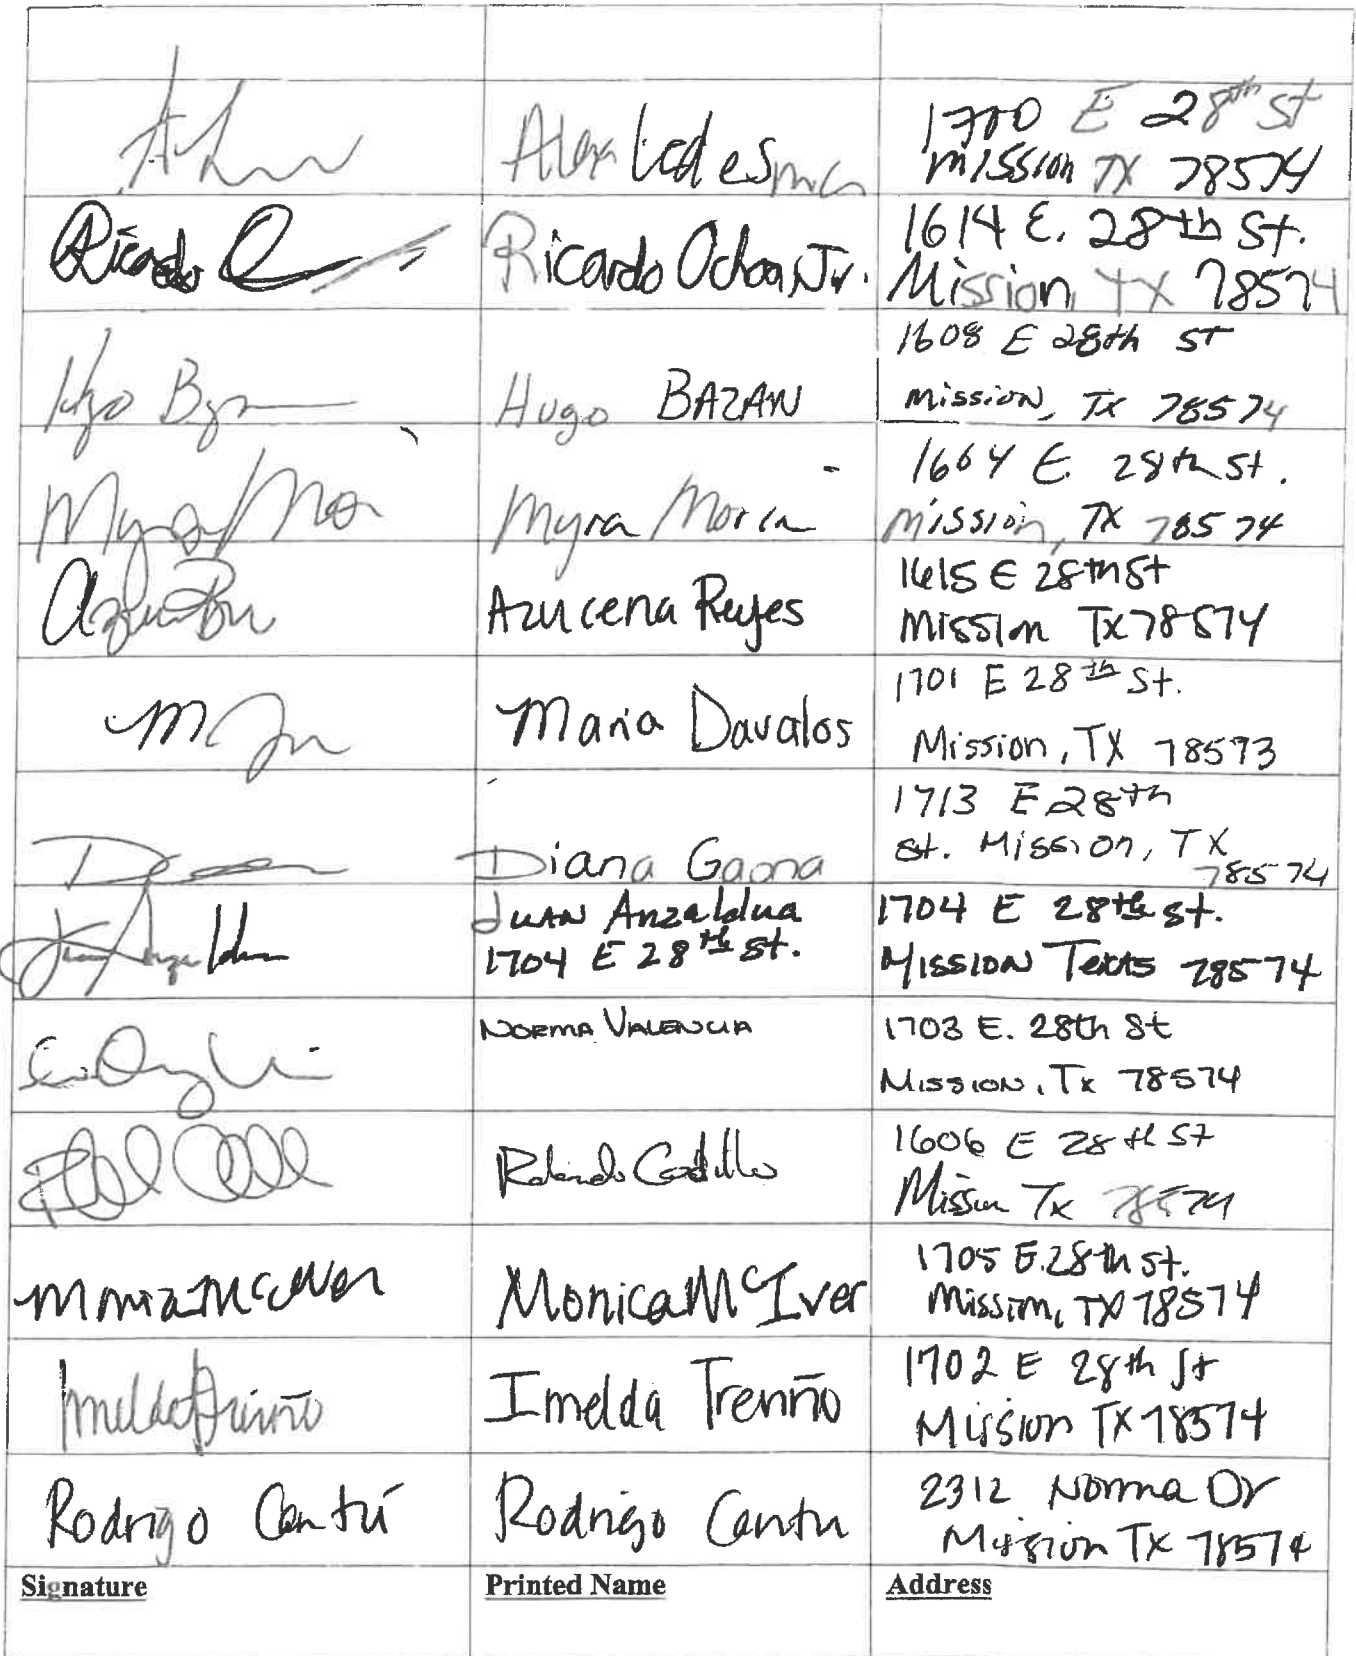 Alex Ledesma
1700 E 28th St
Mission TX 78574
Ricardo
Ricardo Ochoa Jr.
1614 E. 28th St.
Mission, TX 78574
Hugo BAZAN
1608 E 28th ST
Mission, TX 78574
Myra
Myra Morin
1604 E. 28th St.
Mission, TX 78574
Azucena Reyes
1615 E 28th St
Mission Tx 78574
Maria Davalos
1701 E 28th St.
Mission, TX 78573
Diana Gaona
1713 E 28th
St. Mission, TX
78574
Juan Anzaldua
JUAN Anzaldua
1704 E 28th St.
1704 E 28th St.
MISSION Texas 78574
NORMA VALENCIA
1703 E. 28th St
MISSION, Tx 78574
Rolando Castillo
1606 E 28th ST
Mission Tx 78574
Monica McIver
Monica McIver
1705 E. 28th St.
Mission, TX 78574
Imelda Treviño
Imelda Treviño
1702 E 28th St
Mission TX 78574
Rodrigo Cantú
Rodrigo Cantu
2312 Norma Dr
Mission TX 78574
Signature
Printed Name
Address